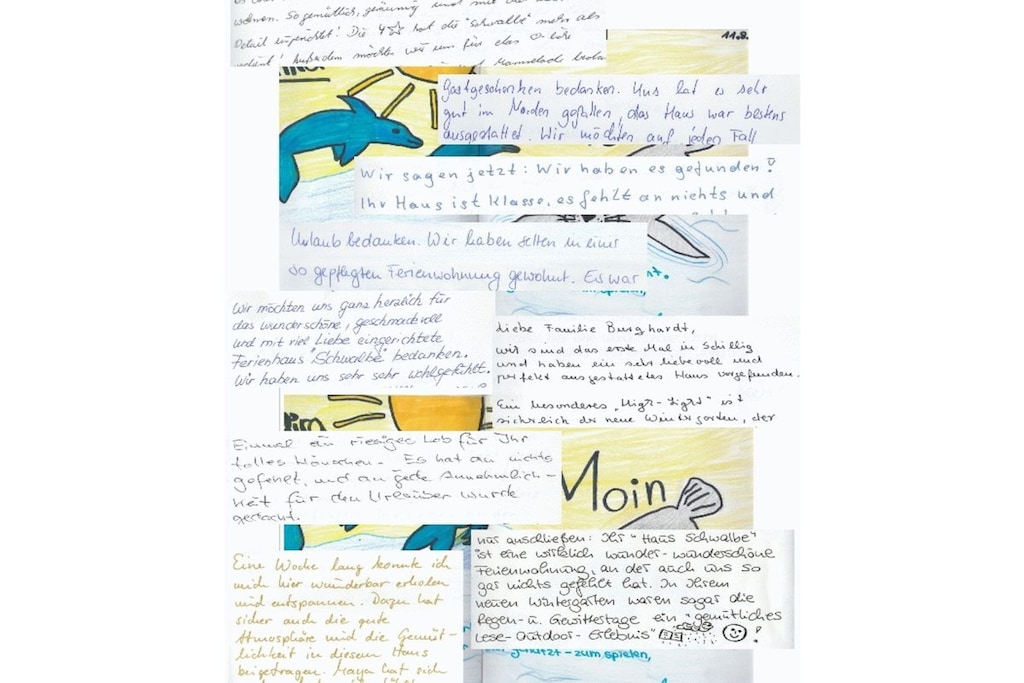 wohnen. So gemütlich, geräumig und mit
Detail eingerichtet! Die 4☆ hat die "Schwalbe" mehr als
verdient! Außerdem möchten wir uns für das
11.8.
Gastgeschenken bedanken. Uns hat es sehr
gut im Norden gefallen, das Haus war bestens
ausgestattet. Wir möchten auf jeden Fall
Wir sagen jetzt: Wir haben es gefunden!
Ihr Haus ist Klasse, es fehlt an nichts und
Urlaub bedanken. Wir haben selten in einer
so gepflegten Ferienwohnung gewohnt. Es war
Wir möchten uns ganz herzlich für
das wunderschöne, geschmackvoll
und mit viel Liebe eingerichtete
Ferienhaus "Schwalbe" bedanken.
Wir haben uns sehr sehr wohlgefühlt.
Liebe Familie Burghardt,
wir sind das erste Mal in Schillig
und haben ein sehr liebevoll und
perfekt ausgestattetes Haus vorgefunden.
Ein besonderes "Higt-Light" ist
sicherlich der neue Wintergarten, der
Einmal ein riesiges Lob für Ihr
tolles Häuschen. Es hat an nichts
gefehlt, und an jede Annehmlich-
keit für den Urlauber wurde
gedacht.
Moin
nur anschließen: Ihr "Haus Schwalbe"
ist eine wirklich wunder-wunderschöne
Ferienwohnung, an der auch uns so
gar nichts gefehlt hat. In Ihrem
neuen Wintergarten waren sogar die
Regen- u. Gewittertage ein "gemütliches
Lese-Outdoor-Erlebnis" !
Eine Woche lang konnte ich
mich hier wunderbar erholen
und entspannen. Dazu hat
sicher auch die gute
Atmosphäre und die Gemüt-
lichkeit in diesem Haus
beigetragen. Maya hat sich
zum spielen,